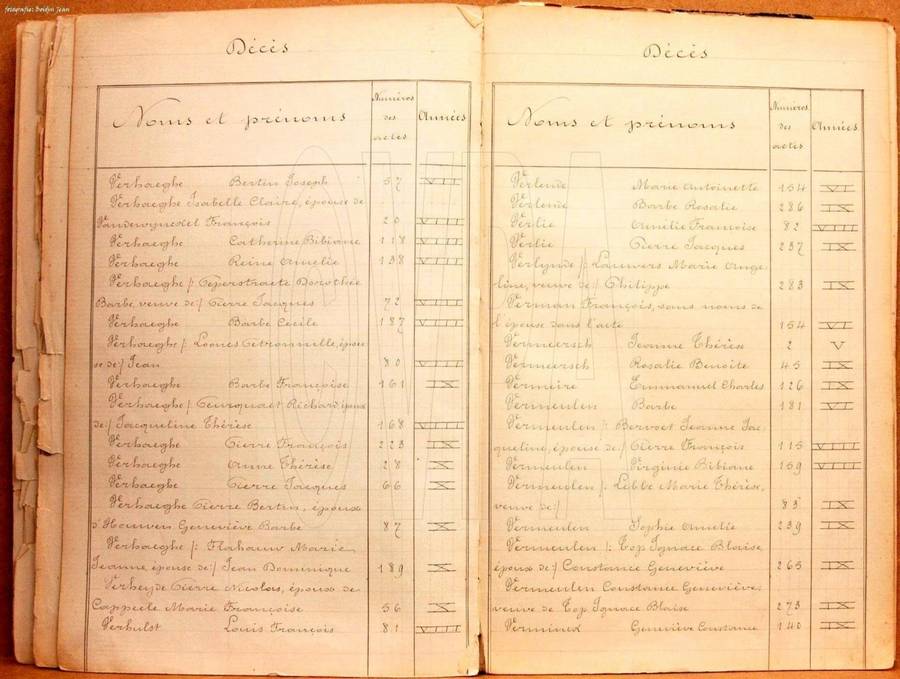 fotografie: Beidyn Jean
Décès
Noms et prénoms
Numéros
des
actes
Années
Verhaeghe Bertin Joseph 57 VII
Verhaeghe Isabelle Claire, épouse de
François 20 VIII
Verhaeghe Catherine Bibiane 118 VIII
Verhaeghe Reine Amelie 138 VIII
Verhaeghe /: Ceperstraete Dorothée
Barbe, veuve de :/ Pierre Jacques 72 VIII
Verhaeghe Barbe Cécile 187 VIII
Verhaeghe /: Loones Pétronnille, épou-
se de :/ Jean 80 VIII
Verhaeghe Barbe Françoise 161 IX
Verhaeghe /: Richard, époux
de :/ Jacqueline Thérèse 168 VIII
Verhaeghe Pierre François 223 IX
Verhaeghe Anne Thérèse 28 X
Verhaeghe Pierre Jacques 66 X
Verhaeghe Pierre Bertin, époux
d'Houwen Geneviève Barbe 87 X
Verhaeghe /: Flahauw Marie
Jeanne, épouse de :/ Jean Dominique 189 X
Verheyde Pierre Nicolas, époux de
Cappeele Marie Françoise 56 X
Verhulst Louis François 81 VIII
Décès
Noms et prénoms
Numéros
des
actes
Années
Verlende Marie Antoinette 154 VI
Verlende Barbe Rosalie 286 IX
Verlie Amélie Francoise 82 VIII
Verlie Pierre Jacques 237 IX
Verlynde /: Lauwers Marie Ange-
line, veuve de :/ Philippe 283 IX
Verman François, sans noms de
l'épouse dans l'acte 154 VI
Vermeersch Jeanne Thérèse 2 V
Vermeersch Rosalie Benoite 45 IX
Vermeire Emmanuel Charles 126 IX
Vermeulen Barbe 181 VI
Vermeulen /: Bervoet Jeanne Jac-
queline, épouse de :/ Pierre François 115 VIII
Vermeulen Virginie Bibiane 159 VIII
Vermeulen /: Lebbe Marie Thérèse,
veuve de :/ 83 IX
Vermeulen Sophie Amelie 239 IX
Vermeulen /: Top Ignace Blaise,
époux de :/ Constance Geneviève 265 IX
Vermeulen Constance Geneviève,
veuve de Top Ignace Blaise 273 IX
Geneviève Constance 140 IX